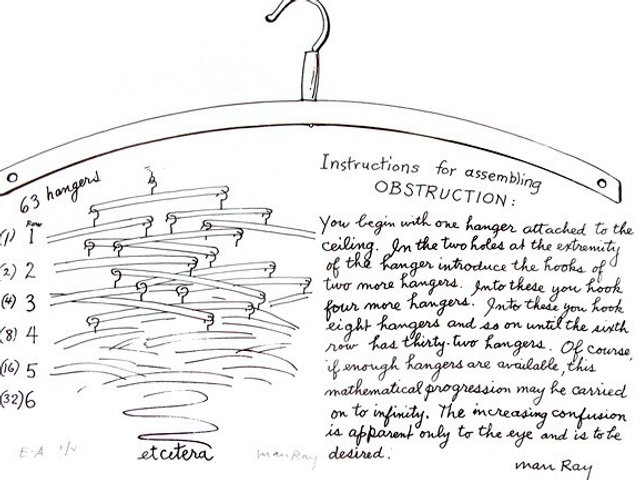 63 hangers
Row
(1) 1
(2) 2
(4) 3
(8) 4
(16) 5
(32) 6
etcetera
E.A
man Ray
Instructions for assembling
OBSTRUCTION:
You begin with one hanger attached to the
ceiling. In the two holes at the extremity
of the hanger introduce the hooks of
two more hangers. Into these you hook
four more hangers. Into these you hook
eight hangers and so on until the sixth
row has thirty-two hangers. Of course
if enough hangers are available, this
mathematical progression may be carried
on to infinity. The increasing confusion
is apparent only to the eye and is to be
desired.
man Ray